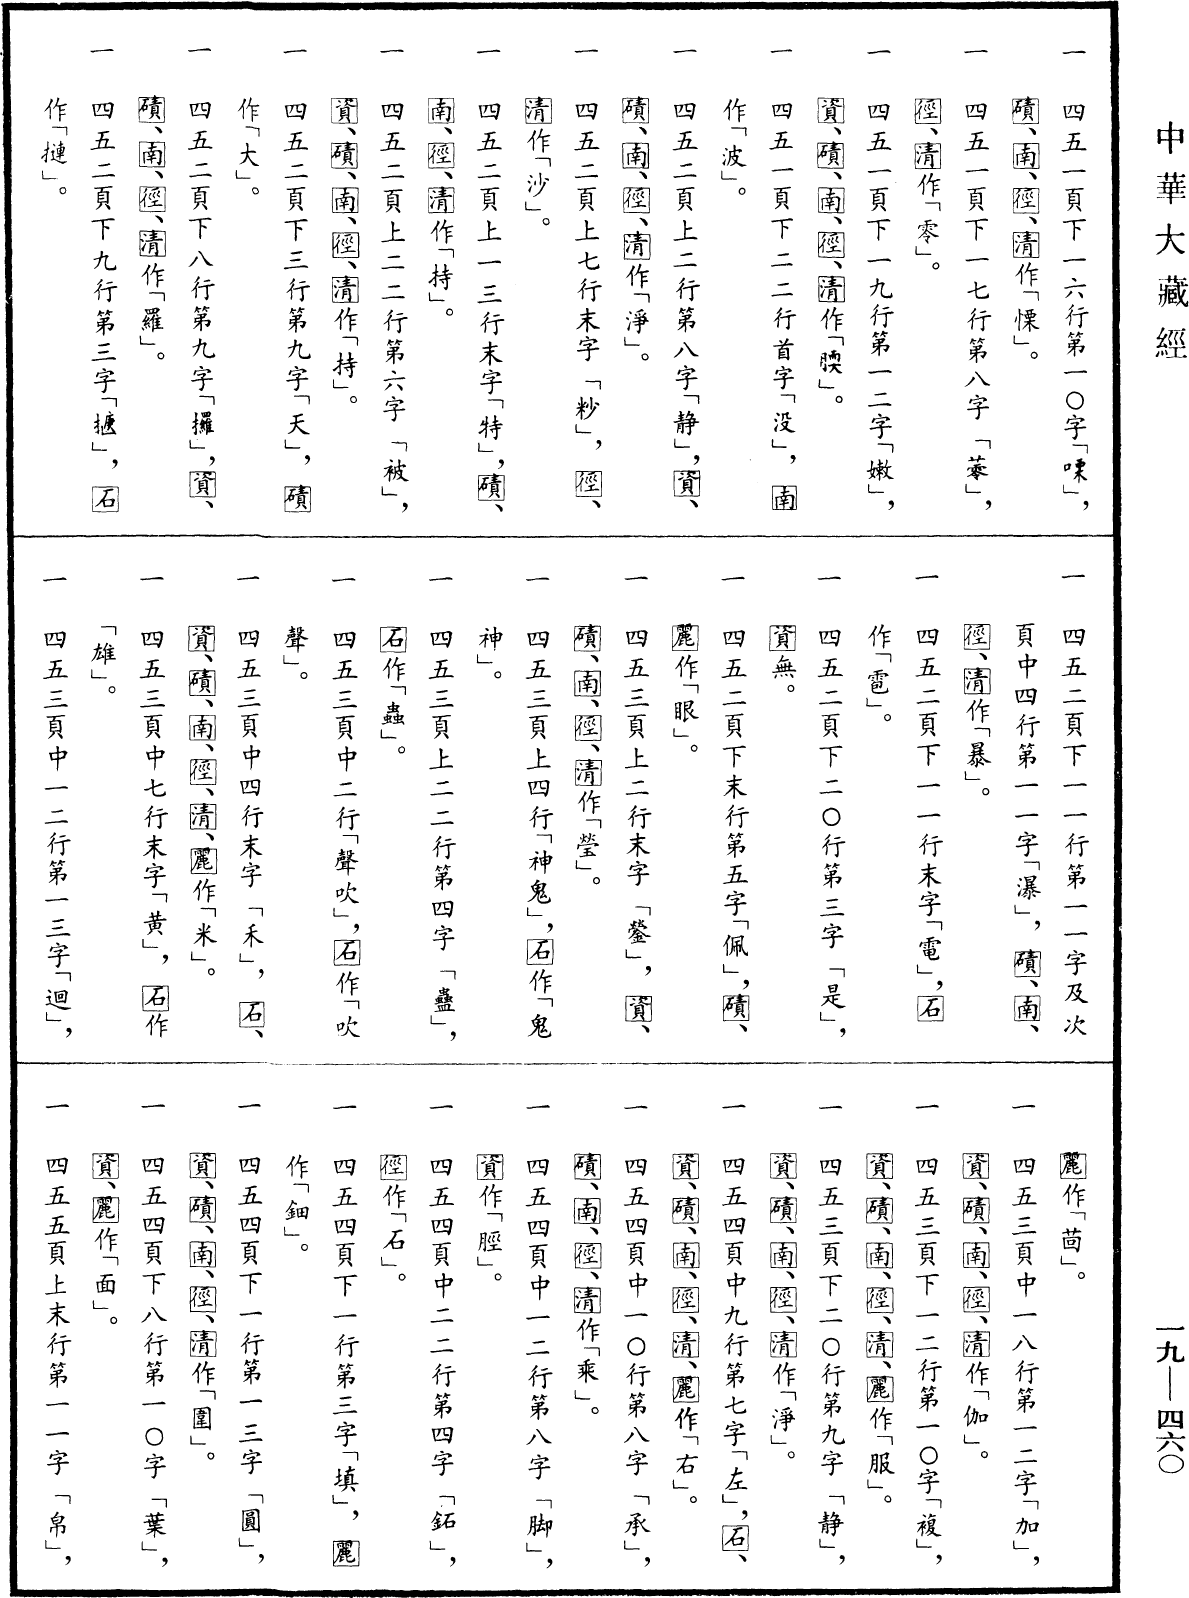 中華大藏經
一九—四六〇
一 四五一頁下一六行第一〇字「㗚」，
磧、南、徑、清作「慄」。
一 四五一頁下一七行第八字「蔘」，
徑、清作「零」。
一 四五一頁下一九行第一二字「嫩」，
資、磧、南、徑、清作「腝」。
一 四五一頁下二二行首字「没」，南
作「波」。
一 四五二頁上二行第八字「静」，資、
磧、南、徑、清作「淨」。
一 四五二頁上七行末字「粆」，徑、
清作「沙」。
一 四五二頁上一三行末字「特」，磧、
南、徑、清作「持」。
一 四五二頁上二二行第六字「被」，
資、磧、南、徑、清作「持」。
一 四五二頁下三行第九字「天」，磧
作「大」。
一 四五二頁下八行第九字「攞」，資、
磧、南、徑、清作「羅」。
一 四五二頁下九行第三字「摭」，石
作「摙」。
一 四五二頁下一一行第一一字及次
頁中四行第一一字「瀑」，磧、南、
徑、清作「暴」。
一 四五二頁下一一行末字「電」，石
作「雹」。
一 四五二頁下二〇行第三字「是」，
資無。
一 四五二頁下末行第五字「佩」，磧、
麗作「眼」。
一 四五三頁上二行末字「鎣」，資、
磧、南、徑、清作「瑩」。
一 四五三頁上四行「神鬼」，石作「鬼
神」。
一 四五三頁上二二行第四字「蠱」，
石作「蟲」。
一 四五三頁中二行「聲吹」，石作「吹
聲」。
一 四五三頁中四行末字「禾」，石、
資、磧、南、徑、清、麗作「米」。
一 四五三頁中七行末字「黄」，石作
「雄」。
一 四五三頁中一二行第一三字「迴」，
麗作「茴」。
一 四五三頁中一八行第一二字「加」，
資、磧、南、徑、清作「伽」。
一 四五三頁下一二行第一〇字「複」，
資、磧、南、徑、清、麗作「服」。
一 四五三頁下二〇行第九字「静」，
資、磧、南、徑、清作「淨」。
一 四五四頁中九行第七字「左」，石、
資、磧、南、徑、清、麗作「右」。
一 四五四頁中一〇行第八字「承」，
磧、南、徑、清作「乘」。
一 四五四頁中一二行第八字「脚」，
資作「脛」。
一 四五四頁中二二行第四字「鉐」，
徑作「石」。
一 四五四頁下一行第三字「填」，麗
作「鈿」。
一 四五四頁下一行第一三字「圓」，
資、磧、南、徑、清作「圍」。
一 四五四頁下八行第一〇字「葉」，
資、麗作「面」。
一 四五五頁上末行第一一字「帛」，